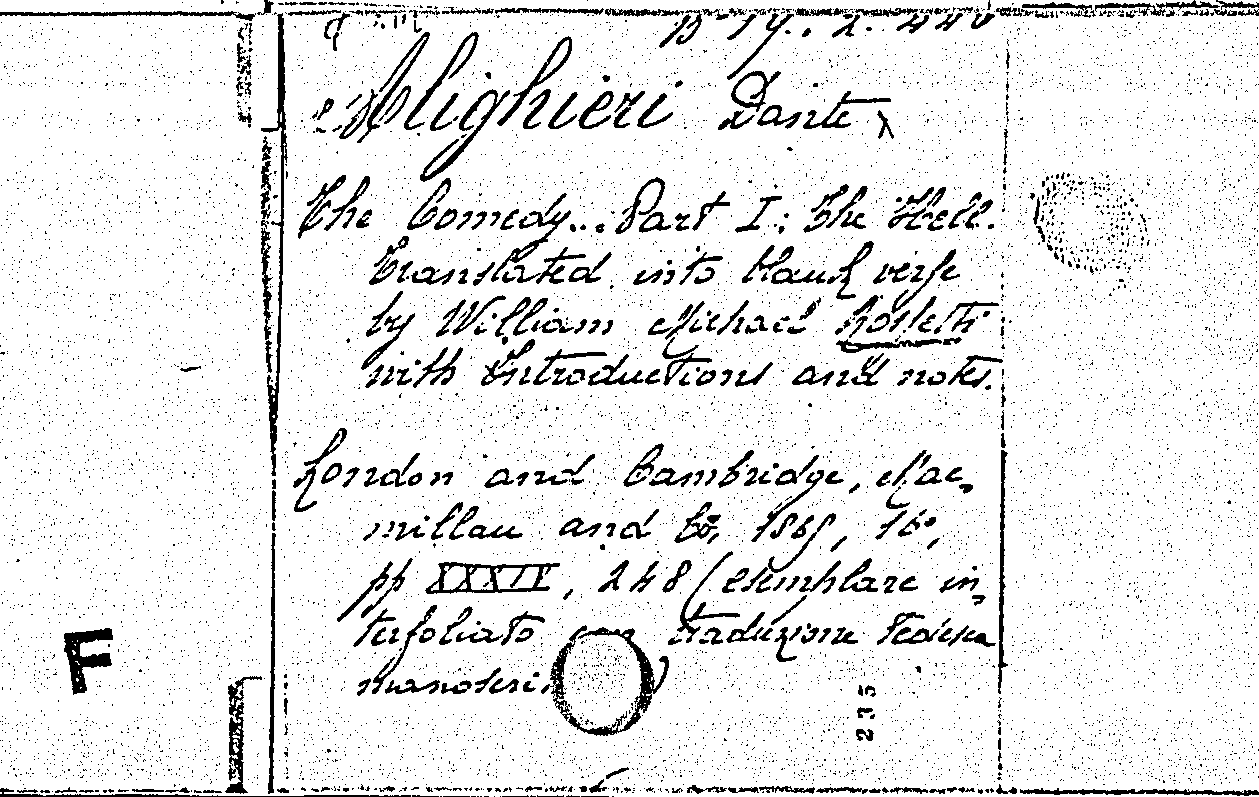 B 19.. 2. 440
Alighieri Dante
The Comedy... Part I: The Hell.
Translated into blank verse
by William Michael Rossetti
with Introductions and notes.
London and Cambridge, Mac-
millan and Co, 1865, 16°,
pp XXXIV, 248 (esemplare in-
terfoliato con traduzione tedesca
manoscri )
F
235